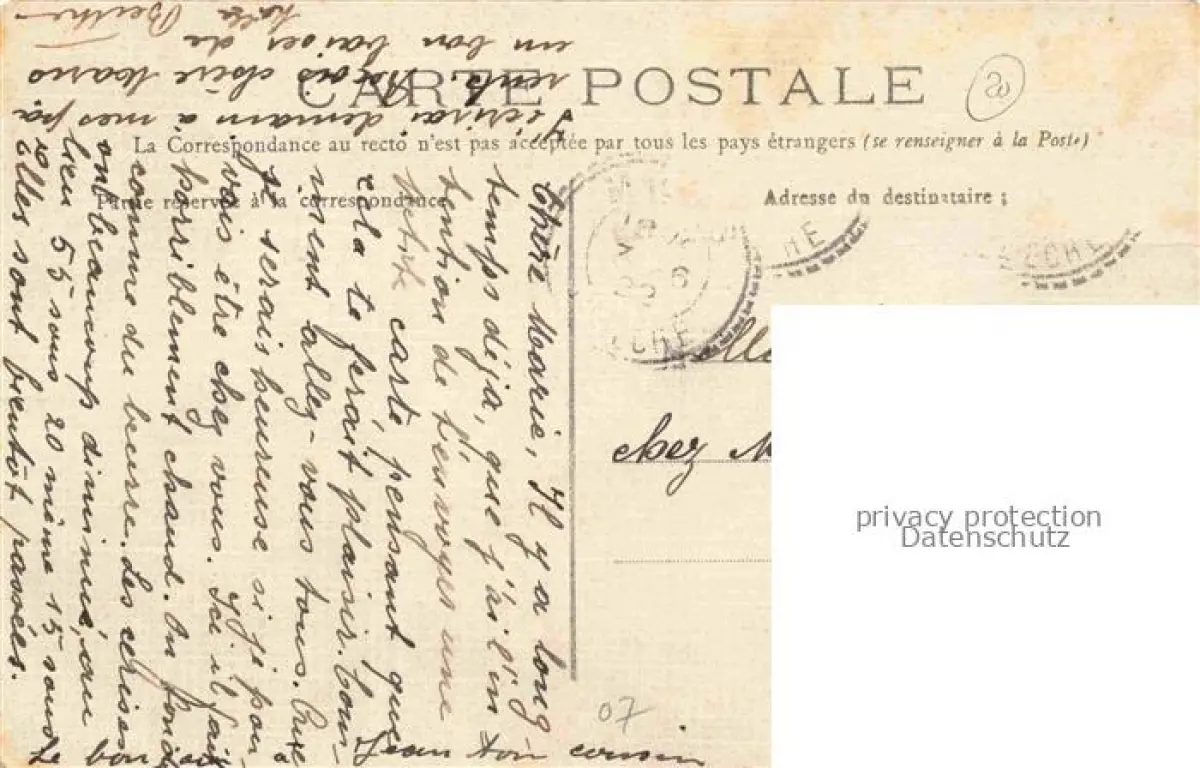 CARTE POSTALE
20
La Correspondance au recto n'est pas acceptée par tous les pays étrangers (se renseigner à la Poste)
Partie réservée à la correspondance
Adresse du destinataire ;
Chère Marie, Il y a long
temps déja, que j'ai l'in
tention de t'envoyer une
petite carte, pensant que
cela te ferait plaisir.
vissent allez-vous tous.
je serais heureuse si je pou-
vais être chez vous. Ici il fait
horriblement chaud. On fond
comme du beurre. Les cerises
ont beaucoup diminué, au
lieu 55 sous 20 même 15 sous
elles sont bientôt passées.
J'écrirai demain à mes pa
rents. Reçois chère Marie
un bon baiser de
Berthe
Jean ton cousin
chez M
ECHE
07
privacy protection
Datenschutz